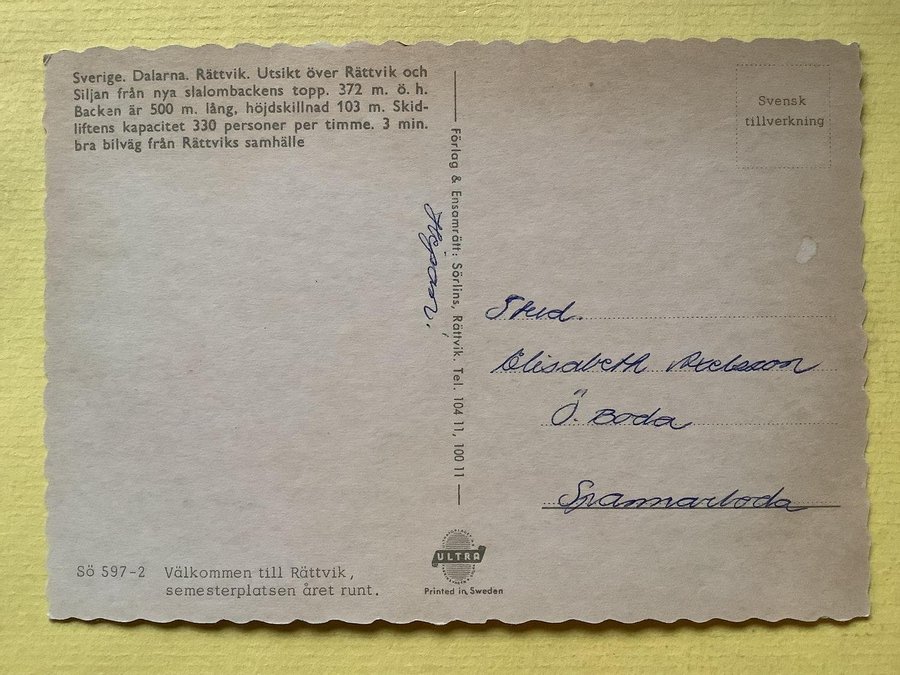 Sverige. Dalarna. Rättvik. Utsikt över Rättvik och
Siljan från nya slalombackens topp. 372 m. ö. h.
Backen är 500 m. lång, höjdskillnad 103 m. Skid-
liftens kapacitet 330 personer per timme. 3 min.
bra bilväg från Rättviks samhälle
Förlag & Ensamrätt: Sörlins, Rättvik. Tel. 104 11, 100 11
Svensk
tillverkning
Stud.
Elisabeth Axelsson
Ö. Boda
Spannarboda
Sö 597-2 Välkommen till Rättvik,
semesterplatsen året runt.
ULTRA
Printed in Sweden